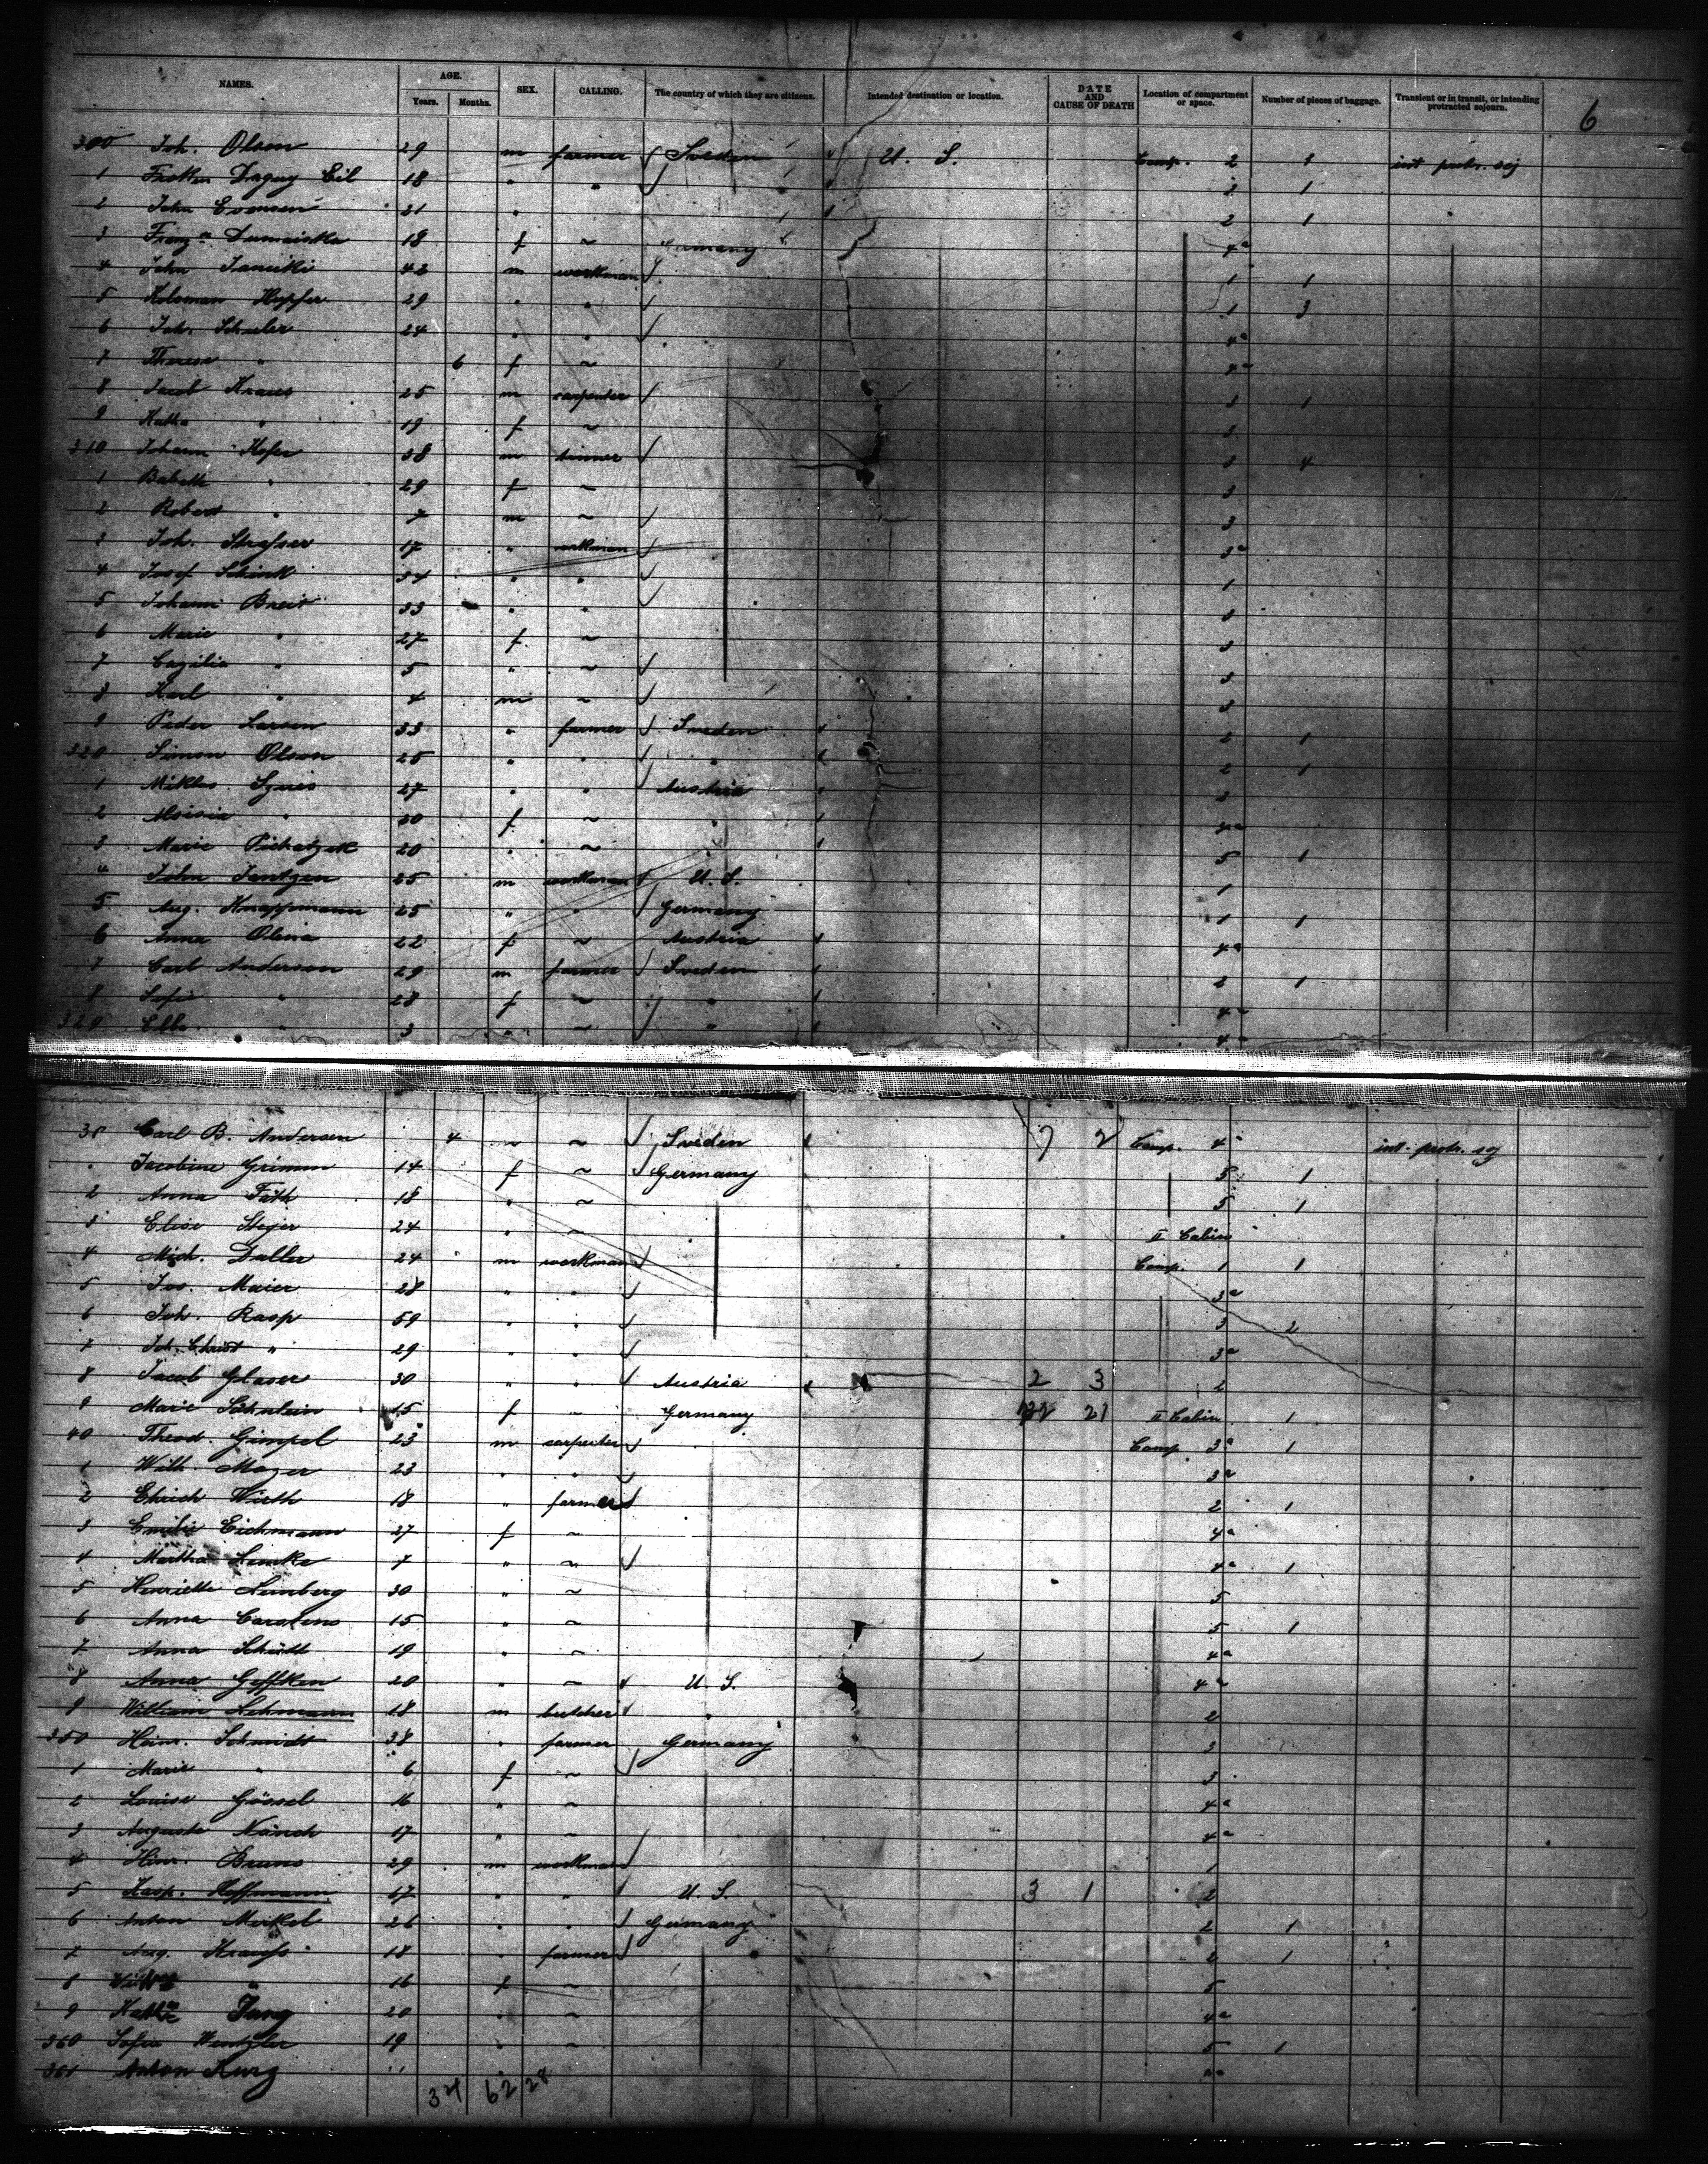 NAMES. AGE. Years. Months. SEX. CALLING. The country of which they are citizens. Intended destination or location. DATE AND CAUSE OF DEATH Location of compartment or space. Number of pieces of baggage. Transient or in transit, or intending protracted sojourn.
6
300 Joh. Olson 29 m farmer Sweden U. S. Comp. 2 1 int. protr. soj
1 18 " " 2 1
2 John 21 " 2 1
3 18 f ~ Germany 4a
4 John 42 m workman 1 1
5 Koloman Hupfer 29 " " 1 3
6 Joh. Schuler 24 " " 4a
7 Therese " 6 f ~ 4a
8 Jacob Kraus 25 m carpenter 3 1
9 Katha " 19 f ~ 3
310 Johann Hofer 38 m 3 4
1 Babette " 29 f ~ 3
2 Robert " 7 m ~ 3
3 Joh. 17 " workman 3a
4 Josef Schink 34 " " 1
5 Johann Breit 33 " " 3
6 Marie " 27 f ~ 3
7 Cazilia " 5 " ~ 3
8 Karl " 4 m ~ 3
9 Peder Larsen 33 " farmer Sweden 2 1
320 Simon Olson 25 " " " 2 1
1 Miklos 27 " " Austria 3
2 " 20 f ~ " 4a
3 Marie 20 " ~ 5 1
4 John Jantzen 25 m workman U. S. 1
5 Aug. Knappmann 25 " " Germany 1 1
6 Anna Olena 22 f ~ Austria 4a
7 Carl Anderson 29 m farmer Sweden 2 1
8 Sofie " 28 f ~ " 4a
329 " 3 " ~ " 4a
Carl B. Andersen 4 ~ ~ Sweden Comp. 4a int. protr. soj
" Jacobine Grimm 14 f ~ Germany 5 1
2 Anna Fath 18 " ~ 5 1
3 Elise Steger 24 " ~ II Cabin
4 Mich. Daller 24 m workman Comp. 1 1
5 Jos. Maier 28 " " 3a
6 Joh. Rasp 59 " " 3 2
7 Joh. Christ " 29 " " 3a
8 Jacob Glaser 30 " " Austria 2 3 2
9 Marie 15 f " Germany 21 II Cabin 1
40 Theod. Gimpel 23 m carpenter Comp. 3a 1
1 Wilh. Mazer 23 " " 3a
2 Ehrich Wirth 18 " farmer 2 1
3 Emilie Eichmann 27 f ~ 4a
4 Martha Lemke 7 " ~ 4a 1
5 Henriette Lemberg 30 " ~ 5
6 Anna Carstens 15 " ~ 5 1
7 Anna Schütt 19 " ~ 4a
8 Anna Geffken 20 " ~ U. S. 4a
9 William Lehmann 28 m butcher " 2
350 Heinr. Schmidt 38 " farmer Germany 3
1 Marie " 6 f ~ 3
2 Louise Gössel 16 " ~ 4a
3 Auguste Münch 17 " ~ 4a
4 Hinr. Bruns 29 m workman 1
5 Kasp. Hoffmann 67 " " U. S. 3 1 2
6 Anton Merkel 26 " " Germany 2 1
7 Aug. Krauss 18 " farmer 2 1
8 " 16 f ~ 5
9 Jung 20 " ~ 4a
360 Sofie Wentzler 19 " ~ 5 1
361 Anton Kurz
34 62 28